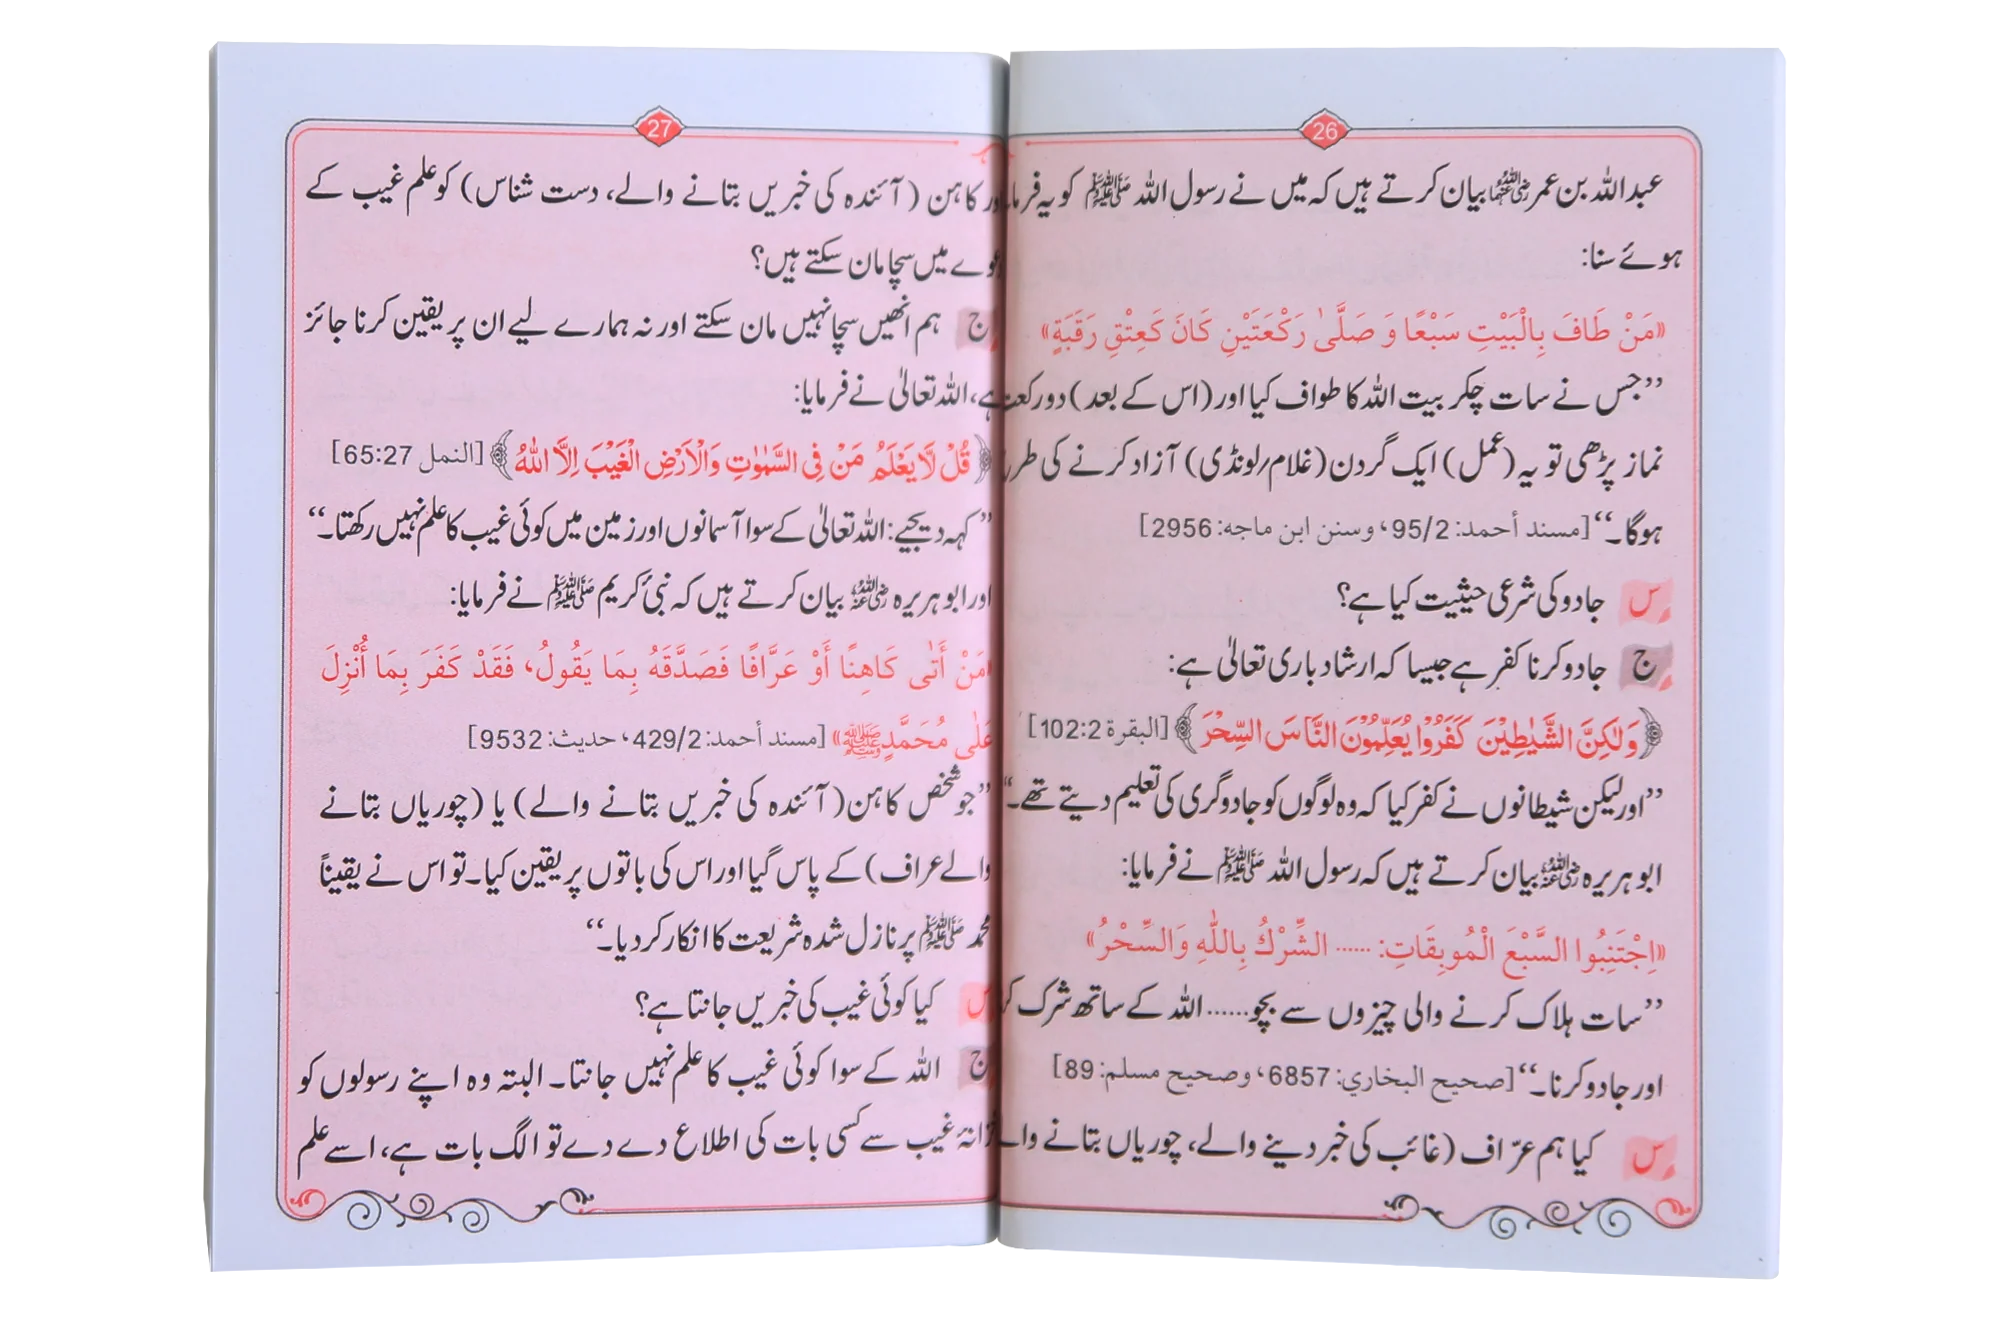 26
عبداللہ بن عمر رضی اللہ عنہما بیان کرتے ہیں کہ میں نے رسول اللہ ﷺ کو یہ
ہوئے سنا:
«مَنْ طَافَ بِالْبَيْتِ سَبْعًا وَ صَلَّىٰ رَكْعَتَيْنِ كَانَ كَعِتْقِ رَقَبَةٍ»
”جس نے سات چکر بیت اللہ کا طواف کیا اور (اس کے بعد) دو رکعت
نماز پڑھی تو یہ (عمل) ایک گردن (غلام/لونڈی) آزاد کرنے کی
ہوگا۔“ [مسند أحمد: 95/2، وسنن ابن ماجه: 2956]
س جادو کی شرعی حیثیت کیا ہے؟
ج جادو کرنا کفر ہے جیسا کہ ارشاد باری تعالیٰ ہے:
﴿وَلٰكِنَّ الشَّيٰطِيْنَ كَفَرُوْا يُعَلِّمُوْنَ النَّاسَ السِّحْرَ﴾ [البقرة 102:2]
”اور لیکن شیطانوں نے کفر کیا کہ وہ لوگوں کو جادوگری کی تعلیم دیتے تھے۔“
ابو ہریرہ رضی اللہ عنہ بیان کرتے ہیں کہ رسول اللہ ﷺ نے فرمایا:
«اِجْتَنِبُوا السَّبْعَ الْمُوبِقَاتِ: ...... الشِّرْكُ بِاللّٰهِ وَالسِّحْرُ»
”سات ہلاک کرنے والی چیزوں سے بچو...... اللہ کے ساتھ شرک
اور جادو کرنا۔“ [صحيح البخاري: 6857، وصحيح مسلم: 89]
س کیا ہم عرّاف (غائب کی خبر دینے والے، چوریاں بتانے
27
کاہن (آئندہ کی خبریں بتانے والے، دست شناس) کو علم غیب کے
میں سچا مان سکتے ہیں؟
ج ہم انھیں سچا نہیں مان سکتے اور نہ ہمارے لیے ان پر یقین کرنا جائز
ہے، اللہ تعالیٰ نے فرمایا:
﴿قُلْ لَّا يَعْلَمُ مَنْ فِى السَّمٰوٰتِ وَالْاَرْضِ الْغَيْبَ اِلَّا اللّٰهُ﴾ [النمل 65:27]
”کہہ دیجیے: اللہ تعالیٰ کے سوا آسمانوں اور زمین میں کوئی غیب کا علم نہیں رکھتا۔“
اور ابو ہریرہ رضی اللہ عنہ بیان کرتے ہیں کہ نبیٔ کریم ﷺ نے فرمایا:
«مَنْ أَتٰى كَاهِنًا أَوْ عَرَّافًا فَصَدَّقَهُ بِمَا يَقُولُ، فَقَدْ كَفَرَ بِمَا أُنْزِلَ
عَلٰى مُحَمَّدٍ ﷺ» [مسند أحمد: 429/2، حديث: 9532]
”جو شخص کاہن (آئندہ کی خبریں بتانے والے) یا (چوریاں بتانے
والے عراف) کے پاس گیا اور اس کی باتوں پر یقین کیا۔ تو اس نے یقیناً
محمد ﷺ پر نازل شدہ شریعت کا انکار کر دیا۔“
س کیا کوئی غیب کی خبریں جانتا ہے؟
ج اللہ کے سوا کوئی غیب کا علم نہیں جانتا۔ البتہ وہ اپنے رسولوں کو
غیب سے کسی بات کی اطلاع دے دے تو الگ بات ہے، اسے علم